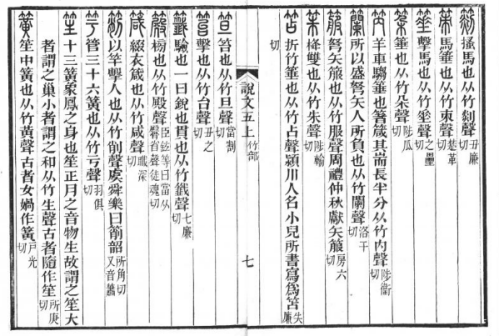 搔馬也从竹剡聲丑廉切
策馬箠也从竹朿聲楚革切
箠擊馬也从竹垂聲之壘切
箠也从竹朵聲陟瓜切
笍羊車騶箠也箸箴其耑長半分从竹內聲陟衛切
籣所以盛弩矢人所負也从竹闌聲洛干切
箙弩矢箙也从竹服聲周禮仲秋獻矢箙房六切
栙雙也从竹朱聲陟輸切
笘折竹箠也从竹占聲潁川人名小兒所書寫爲笘失廉切
說文五上 竹部 七
笪笞也从竹旦聲當割切
笞擊也从竹台聲丑之切
籤驗也一曰銳也貫也从竹韱聲七廉切
榜也从竹殿聲臣鉉等曰當从臀省聲徒魂切
箴綴衣箴也从竹咸聲職深切
箾以竿擊人也从竹削聲虞舜樂曰箾韶所角切又音簫
竽管三十六簧也从竹亏聲羽俱切
笙十三簧象鳳之身也笙正月之音物生故謂之笙大
者謂之巢小者謂之和从竹生聲古者隨作笙所庚切
簧笙中簧也从竹黃聲古者女媧作簧戶光切